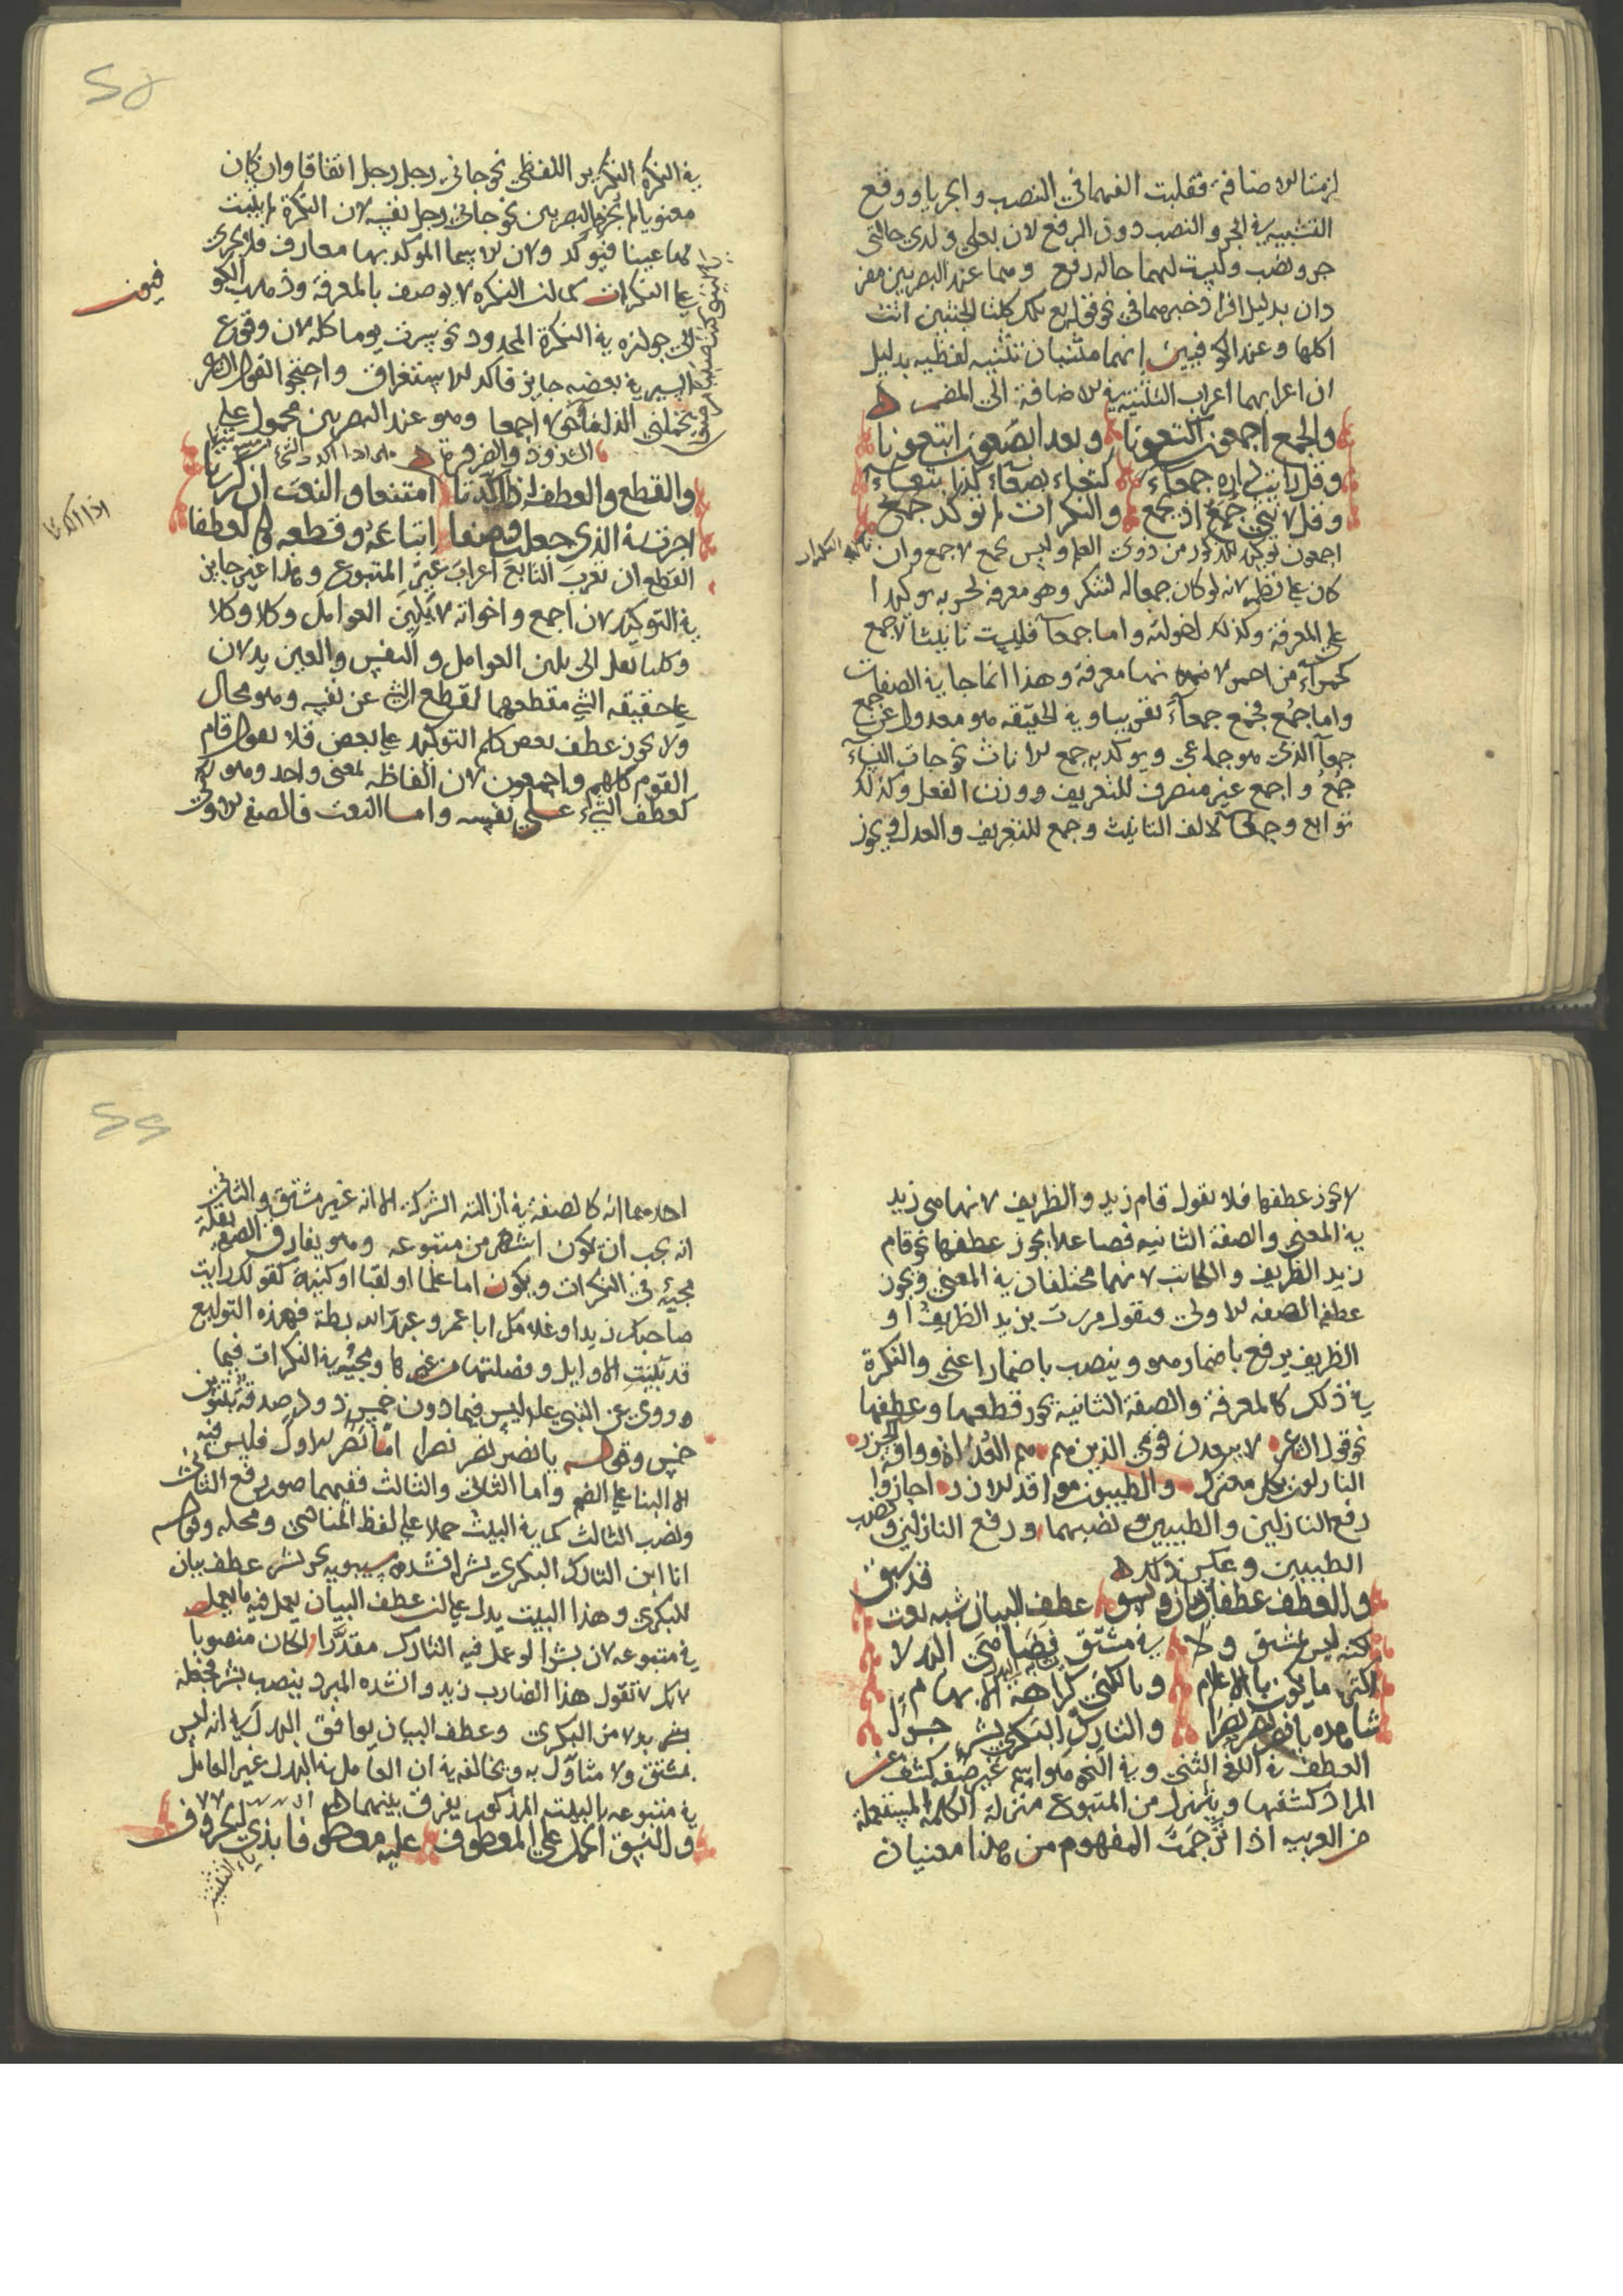 لزمتا الاضافة فقلبت الفهما في النصب والجر ياء ووقع
التشبيه في الجر والنصب دون الرفع لان بعلى ولدى حالتى
جر ونصب وليست لهما حالة رفع وهما عند البصريين مفر
دان بدليل افراد خبرهما في نحو قوله تع كلتا الجنتين اتت
اكلها وعند الكوفيين انهما مثنيان تثنية لفظية بدليل
ان اعرابهما اعراب التثنية في الاضافة الى المضمر
والجمع اجمعون اكتعونا وبعد ابصعون ابتعونا
وقل رايت داره جمعاء كتعاء بصعاء كذا بتعاء
وقل لاثنى جمع اذ تجمع والنكرات لم توكد جمع
اجمعون توكيد للمذكور من ذوى العلم وليس بجمع لاجمع وان
كان على نظمه لانه لو كان جمعا له لتنكر وهو معرفة لجريه توكيدا
على المعرفة وكذلك اخواته واما جمعاء فليست تانيثا لاجمع
كحمراء من احمر لانهما معرفة وهذا انما جا في الصفات
واما جمع فجمع جمعاء تقريبا وفي الحقيقه هو معدول عن جمع
جمعا الذى هو جماعى ويوكد به جمع الاناث نحو جات النساء
جمع واجمع غير منصرف للتعريف ووزن الفعل وكذلك
توابع وجمعاء لالف التانيث وجمع للتعريف والعدل ويجوز
في النكرة التكرير اللفظي نحو جاني رجل رجل اتفاقا وان كان
معنويا لم يجزه البصريين نحو جاني رجل نفسه لان النكرة لم يثبت
لها عينا فتؤكد ولان الاسما الموكد بها معارف فلا يجرى
على النكرات كما ان النكره لا يوصف بالمعرفة وذهب الكو
فيون
الى جوازه في النكرة المحدود نحو سرت يوما كله لان وقوع
السير في بعضه جايز فاكد للاستغراق واحتجوا بقول الشاعر
تحملني الذلفا حولا اجمعا وهو عند البصريين محمول على
الشذوذ والضرورة
والقطع والعطف اذا اكدتا امتنعا والنعت ان كررتا
اخرته الذي جعلت وصفا اتباعه وقطعه والعطفا
اذا اكدتا
القطع ان تعرب التابع اعراب غير المتبوع وهذا غير جايز
في التوكيد لان اجمع واخواته لا يلين العوامل وكلا وكلا
وكلتا تعل الى يلين العوامل والنفس والعين يدلان
على حقيقه الشي فقطعهما لقطع الشي عن نفسه وهو محال
ولا يجوز عطف بعض كلم التوكيد على بعض فلا تقول قام
القوم كلهم واجمعون لان الفاظه لمعنى واحد وهو
كعطف الشيء على نفسه واما النعت فالصفة الاولى
لا يجوز عطفها فلا تقول قام زيد والظريف لانها هي زيد
في المعنى والصفة الثانيه فصاعدا يجوز عطفها نحو قام
زيد الظريف والكاتب لانهما مختلفان في المعنى ويجوز
عطف الصفه الاولى فتقول مررت بزيد الظريف او
الظريف يرفع باضمار هو وينصب باضمار اعني والنكرة
في ذلك كالمعرفة والصفة الثانية يجوز قطعها وعطفها
نحو قول الشاعر لا يبعدن قومي الذين هم سم العداة وافة الجزر
النازلون بكل معترك والطيبون معاقد الازر اجازوا
رفع النازلين والطيبين ونصبهما ورفع النازلين ونصب
الطيبين وعكس ذلك قد سبق
والعطف عطفان بيان ونسق عطف البيان شبه نعت
لكنه ليس بمشتق ولا في مشتق
اكثر ما يكون بالاعلام وبالكنى كراهة الابهام
شاهده يا نصر نصر نصرا والتارك البكري بشر
العطف في اللغة الثني وفي النحو هو اسم غير صفه كشف عن
المراد كشفها وينزل من المتبوع منزلة الكلمة المستعملة
من العربيه اذا ترجمت المفهوم من هذا معنيان
احدهما انه كالصفة في ازالته الشركة الا انه غير مشتق والثاني
انه يجب ان يكون اشهر من متبوعه وهو يفارق الصفة بقلة
مجيئه في النكرات ويكون اما علما او لقبا او كنية كقولك رايت
صاحبك زيدا وغلامك ابا عمرو وعبد الله بطة فهذه التوابع
قد بينت الاوايل وفصلتها من غيرها ومجيئه في النكرات فيما
وروى عن النبي عليه ليس فيما دون خمس ذود صدقة بتنوين
خمس وقوله يا نصر نصر نصرا اما نصر الاول فليس فيه
الا البنا على الضم واما الثاني والثالث ففيهما صور رفع الثاني
ونصب الثالث كما في البيت حملا على لفظ المنادى ومحله وقوله
انا ابن التارك البكري بشر انشده سيبويه بجر بشر عطف بيان
للبكري وهذا البيت يدل على ان عطف البيان يعمل فيه ما يعمل
في متبوعه لان بشرا لو عمل فيه التارك مقدرا لكان منصوبا
لانك لا تقول هذا الضارب زيد وانشده المبرد بنصب بشر فجعله
بدلا من البكري وعطف البيان يوافق البدل في انه ليس
بمشتق ولا متاول به ويخالفه في ان العامل في البدل غير العامل
في متبوعه بالبيت المذكور يفرق بينهما
والنسق احمل على المعطوف عليه معطوفا بذي الحروف